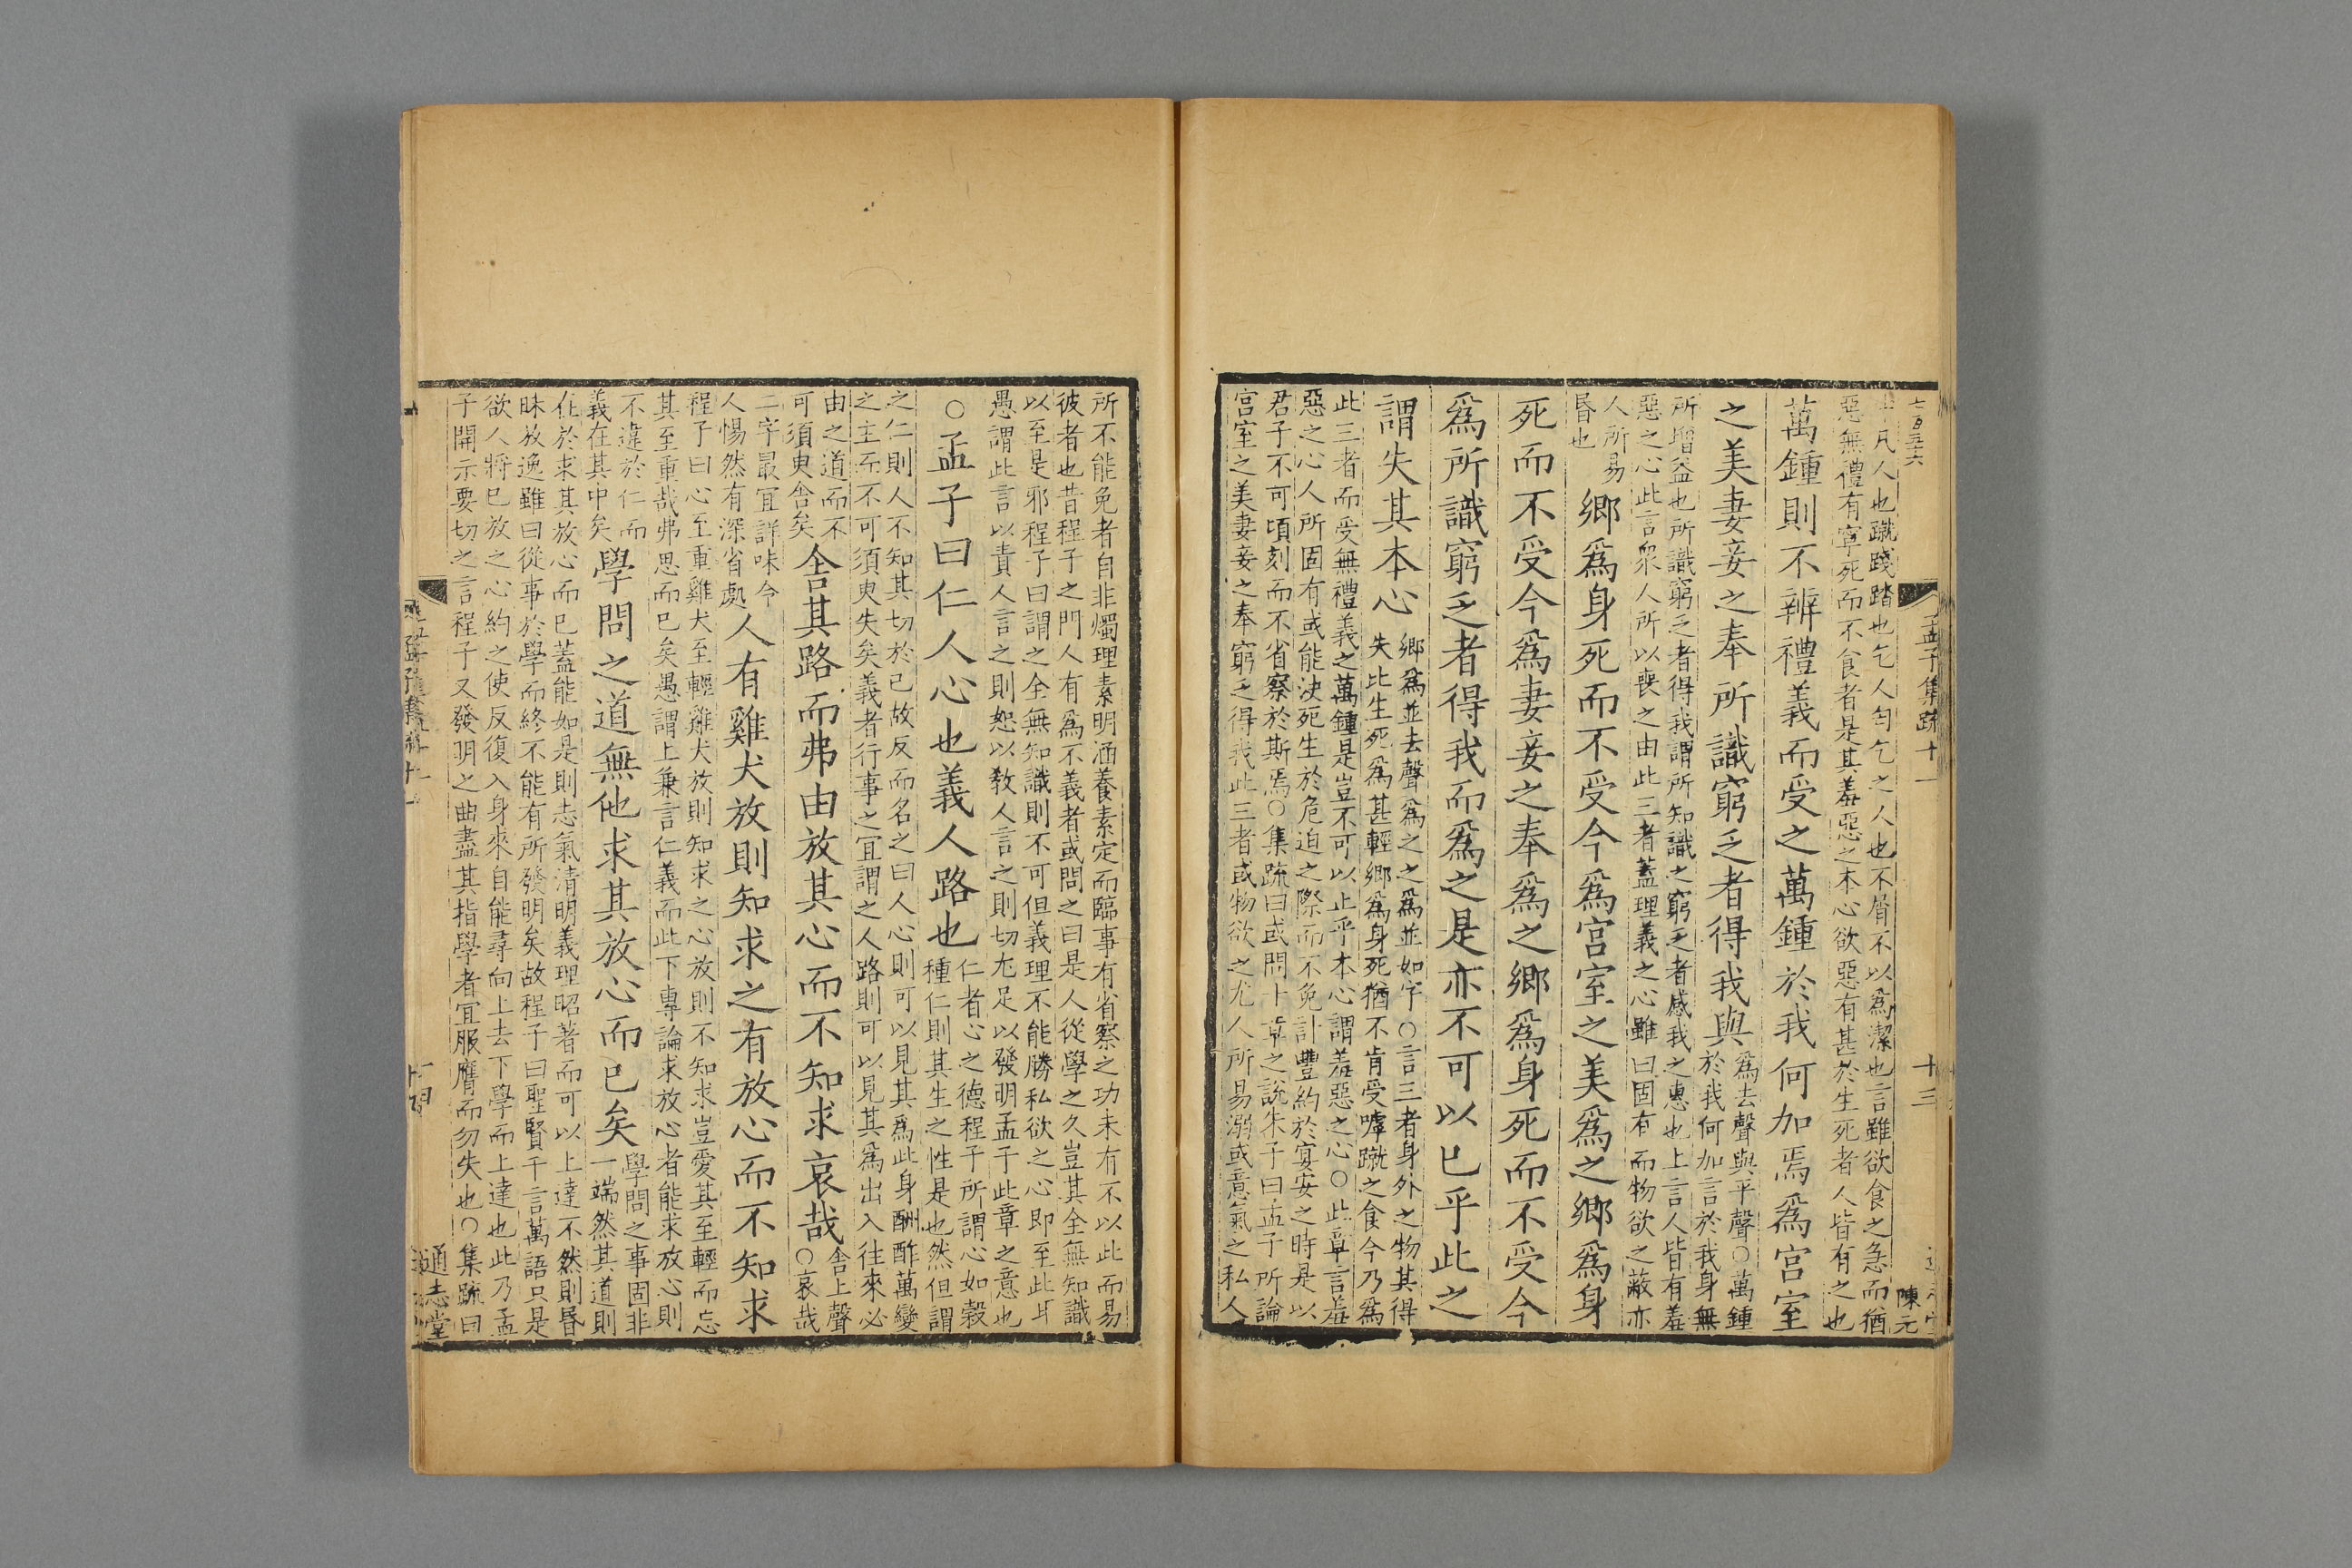 中凡人也蹴踐踏也乞人匄乞之人也不屑不以爲潔也言雖欲食之急而猶
惡無禮有寧死而不食者是其羞惡之本心欲惡有甚於生死者人皆有之也
萬鍾則不辨禮義而受之萬鍾於我何加焉爲宮室
之美妻妾之奉所識窮乏者得我與
爲去聲與平聲○萬鍾
於我何加言於我身無
所增益也所識窮乏者得我謂所知識之窮乏者感我之惠也上言人皆有羞
惡之心此言衆人所以喪之由此三者蓋理義之心雖曰固有而物欲之蔽亦
人所易
昏也
鄉爲身死而不受今爲宮室之美爲之鄉爲身
死而不受今爲妻妾之奉爲之鄉爲身死而不受今
爲所識窮乏者得我而爲之是亦不可以已乎此之
謂失其本心
鄉爲並去聲爲之之爲並如字○言三者身外之物其得
失比生死爲甚輕鄉爲身死猶不肯受嘑蹴之食今乃爲
此三者而受無禮義之萬鍾是豈不可以止乎本心謂羞惡之心○此章言羞
惡之心人所固有或能決死生於危迫之際而不免計豐約於宴安之時是以
君子不可頃刻而不省察於斯焉○集疏曰或問十章之說朱子曰孟子所論
宮室之美妻妾之奉窮乏得我此三者或物欲之尤人所易溺或意氣之私人
孟子集疏十一
十三
陳元
所不能免者自非燭理素明涵養素定而臨事有省察之功未有不以此而易
彼者也昔程子之門人有爲不義者或問之曰是人從學之久豈其全無知識
以至是邪程子曰謂之全無知識則不可但義理不能勝私欲之心即至此耳
愚謂此言以責人言之則恕以教人言之則切尢足以發明孟子此章之意也
○孟子曰仁人心也義人路也
仁者心之德程子所謂心如穀
種仁則其生之性是也然但謂
之仁則人不知其切於已故反而名之曰人心則可以見其爲此身酬酢萬變
之主而不可須臾失矣義者行事之宜謂之人路則可以見其爲出入往來必
由之道而不
可須臾舍矣
舍其路而弗由放其心而不知求哀哉
舍上聲
○哀哉
二字最宜詳味令
人惕然有深省處
人有雞犬放則知求之有放心而不知求
程子曰心至重雞犬至輕雞犬放則知求之心放則不知求豈愛其至輕而忘
其至重哉弗思而已矣愚謂上兼言仁義而此下專論求放心者能求放心則
不違於仁而
義在其中矣
學問之道無他求其放心而已矣
學問之事固非
一端然其道則
在於求其放心而已蓋能如是則志氣清明義理昭著而可以上達不然則昏
昧放逸雖曰從事於學而終不能有所發明矣故程子曰聖賢千言萬語只是
欲人將已放之心約之使反復入身來自能尋向上去下學而上達也此乃孟
子開示要切之言程子又發明之曲盡其指學者宜服膺而勿失也○集疏曰
通志堂